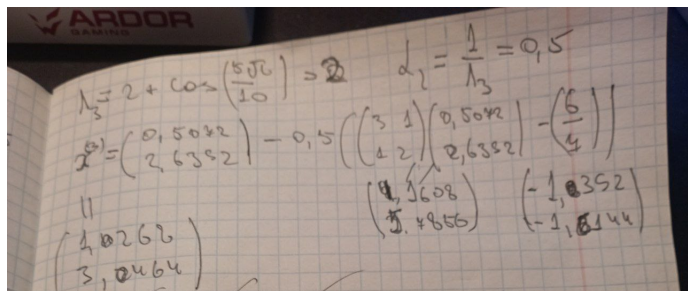 ARDOR
GAMING
λ₃ = 2 + cos(5π/10) = 2 α₂ = 1/λ₃ = 0,5
x⁽³⁾ = (0,5072 2,6352) − 0,5((3 1 1 2)(0,5072 2,6352) − (6 7))
(4,1608 5,7856) (−1,8392 −1,2144)
||
(1,4268 3,2464)